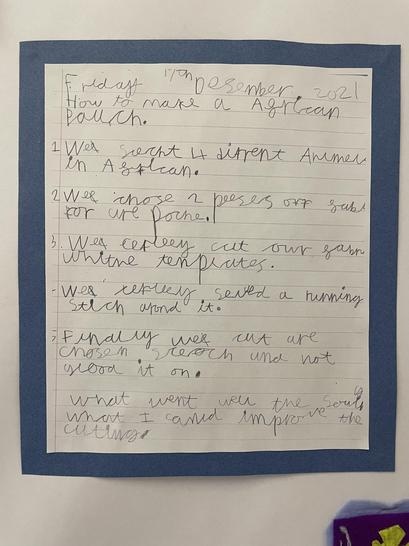 Friday 17th Desember 2021
How to make a African
Pouch.
1 Wea sercht 4 dirrent Animel
in African.
2 Wea chose 2 peeses off
for are poche.
3. Wea cerfley cut our
whithe templates.
Wea cerfley sewed a running
stich arond it.
Finally wea cut are
chosen and not
glood it on.
what went well the
what I carnd improve the
cutting.